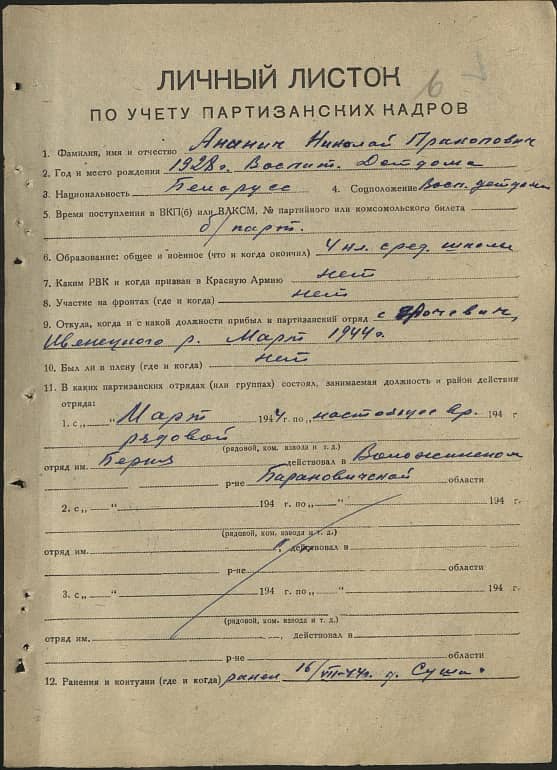 6
ЛИЧНЫЙ ЛИСТОК
ПО УЧЕТУ ПАРТИЗАНСКИХ КАДРОВ
1. Фамилия, имя и отчество Ананич Николай Пракопович
2. Год и место рождения 1928г. Воспит. Детдома
3. Национальность Беларусс 4. Соцположение Восп. детдома
5. Время поступления в ВКП(б) или ВЛКСМ, № партийного или комсомольского билета
б/парт.
6. Образование: общее и военное (что и когда окончил) 4 кл. сред. школы
7. Каким РВК и когда призван в Красную Армию нет
8. Участие на фронтах (где и когда) нет
9. Откуда, когда и с какой должности прибыл в партизанский отряд с
Ивенецкого р. Март 1944г.
10. Был ли в плену (где и когда) нет
11. В каких партизанских отрядах (или группах) состоял, занимаемая должность и район действия
отряда:
1. с „ “ Март 1944 г. по „ настоящее вр. 194 г
рядовой
(рядовой, ком. взвода и т. д.)
отряд им. Берия действовал в Воложинском
р-не Барановичской области
2. с „ “ 194 г. по „ “ 194 г.
(рядовой, ком. взвода и т. д.)
отряд им. действовал в
р-не области
3. с „ “ 194 г. по „ “ 194 г.
(рядовой, ком. взвода и т. д.)
отряд им. , действовал в
р-не области
12. Ранения и контузии (где и когда) ранен 16/VII-44г. д. Суша.